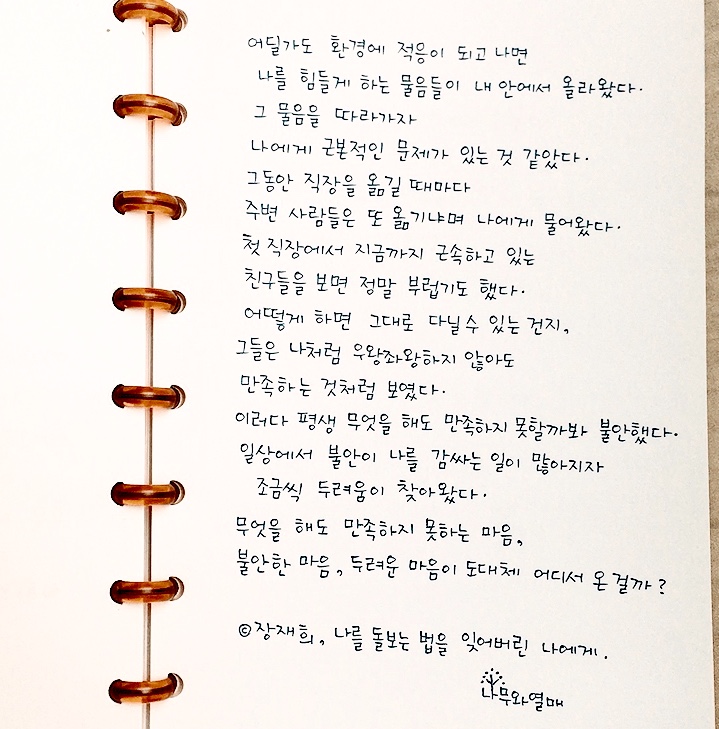 어딜가도 환경에 적응이 되고 나면
나를 힘들게 하는 물음들이 내 안에서 올라왔다.
그 물음을 따라가자
나에게 근본적인 문제가 있는 것 같았다.
그동안 직장을 옮길 때마다
주변 사람들은 또 옮기냐며 나에게 물어왔다.
첫 직장에서 지금까지 근속하고 있는
친구들을 보면 정말 부럽기도 했다.
어떻게 하면 그대로 다닐 수 있는 건지,
그들은 나처럼 우왕좌왕하지 않아도
만족하는 것처럼 보였다.
이러다 평생 무엇을 해도 만족하지 못할까봐 불안했다.
일상에서 불안이 나를 감싸는 일이 많아지자
조금씩 두려움이 찾아왔다.
무엇을 해도 만족하지 못하는 마음,
불안한 마음, 두려운 마음이 도대체 어디서 온 걸까?
©장재희, 나를 돌보는 법을 잊어버린 나에게.
나무와열매